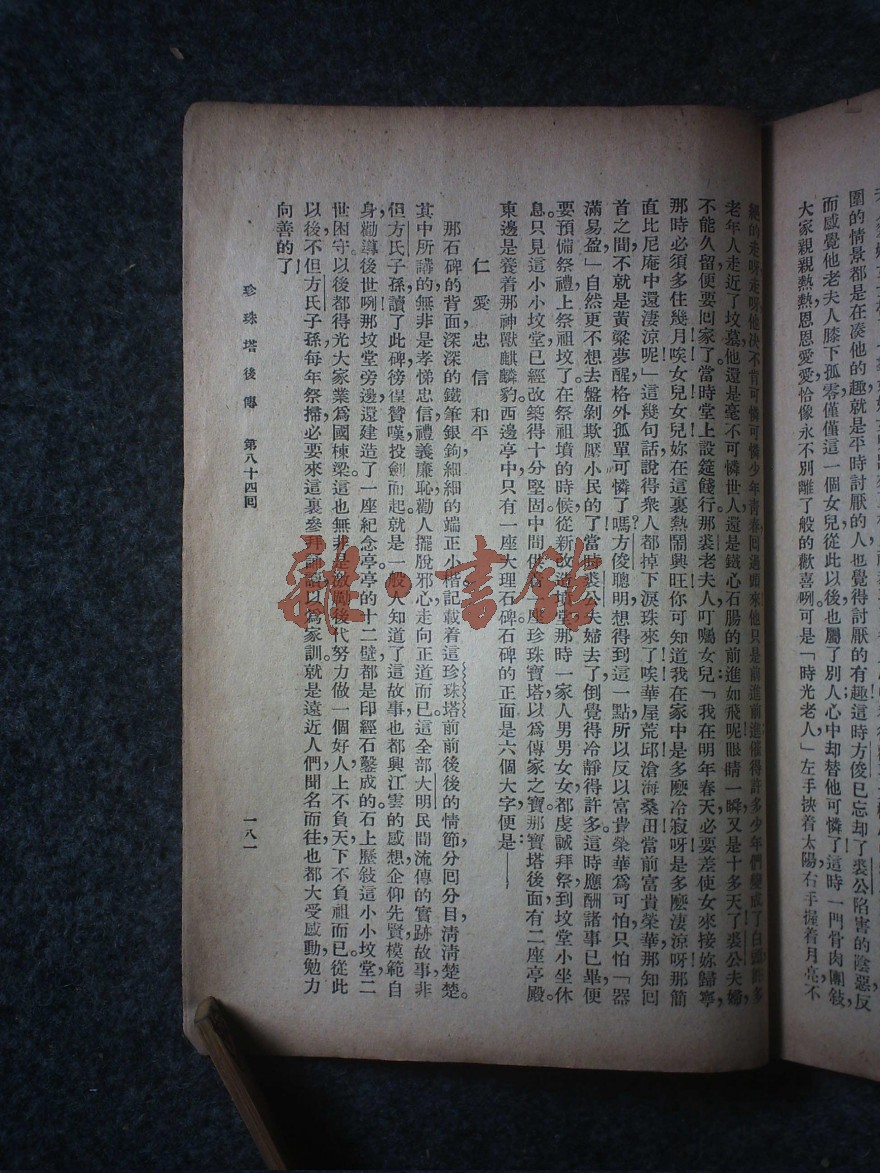 圍的情景都是在湊他的趣就是平時討厭的人也覺得討厭的有趣這時方俊已忘却了裘公陷害的陰惡,反
而感覺他老夫人膝下孤零僅僅這一個女兒從此以後也屬了別人心中却替他可憐了!這時一門骨肉團敍,
大家親親熱熱,恩恩愛愛,恰像永不別離了般的歡喜咧。可是「時光老人」左手挾着太陽,右手握着月亮,不
絕的走呀走呀他決不肯可憐可憐少年靑春回過頭來他只是前進前進催得許多少年們變成了白頭許多
老年人走近了坟墓,他還是毫不可憐世人還是鐵心石腸的前進如飛呢!眼睛一瞬,又是十多天了裘公夫婦,
不能久留便要回家了。當時堂上設筵餞行。那裘老夫人叮囑女兒:「我在明年春天,必要差使女來接妳歸寧,
那時必須多住幾月!唉女兒女兒妳在這裏熱鬧興旺,你可知道我在家中是多麼冷寂呀!是多麼淒涼呀!那簡
直比尼庵中還淒涼呢」這幾句話說得衆人都掉下淚珠來了!唉華屋荒邱滄海桑田當前富貴榮華那知回
首之間,不就是黃粱夢醒格外孤單可憐了嗎?方俊聰明想得到這一點所以反以富貴榮華爲可怕只怕「器
滿易盈」自然更不想去盤剝欺壓小民的了當裘公夫婦去了,倒覺得冷靜得許多。這時應酬諸事已畢,便
要預備祭禮,上祭祖坟了。在祭祖墳的時候,從新改造墳堂那時一家人男男女女都虔誠拜祭,到坟堂小坐休
息。只見這小小坟堂已經改築得十分堅固中間供着一座珍珠寶塔以爲傳家之寶。那寶塔後面有二座亭殿。
東邊是養着那神獸麒麟豹。西邊亭中,只有一座大理石碑石碑的正面是六個大字,便是:——
仁愛忠信和平
那石碑的背面深深的鐵筆銀鉤細細的端正小楷記載着這珍珠塔前前後後的情節,分回分目,淸淸楚楚。
其中所講的無非是孝悌忠信,禮義廉恥,勸人擺脫邪心走向正道而已。這全部大明民間流傳的實跡故事,非
但方氏子孫,讀了此碑徬徨贊嘆,投劍而起。就是一般人知道了這故事,也都興江雲的感想企仰先賢模範,自
身勸導後世咧!那坟堂旁邊還建造了一座紀念亭,亭的十二壁都是印經石鑿成的。石上歷敍這小小坟堂二
世困守。以後都得光大家業,爲國棟梁。這也無非是激勵後代努力做一個好人,上不負天,下不負祖而已。從此
以後,不但方氏子孫,每年祭掃,必要來這裏參拜訓讀,以爲家訓。就是遠近人們,聞名而往,也都大受感動,勉力
向善的了!
珍珠塔後傳 第八十四回 一八一
雜·書館